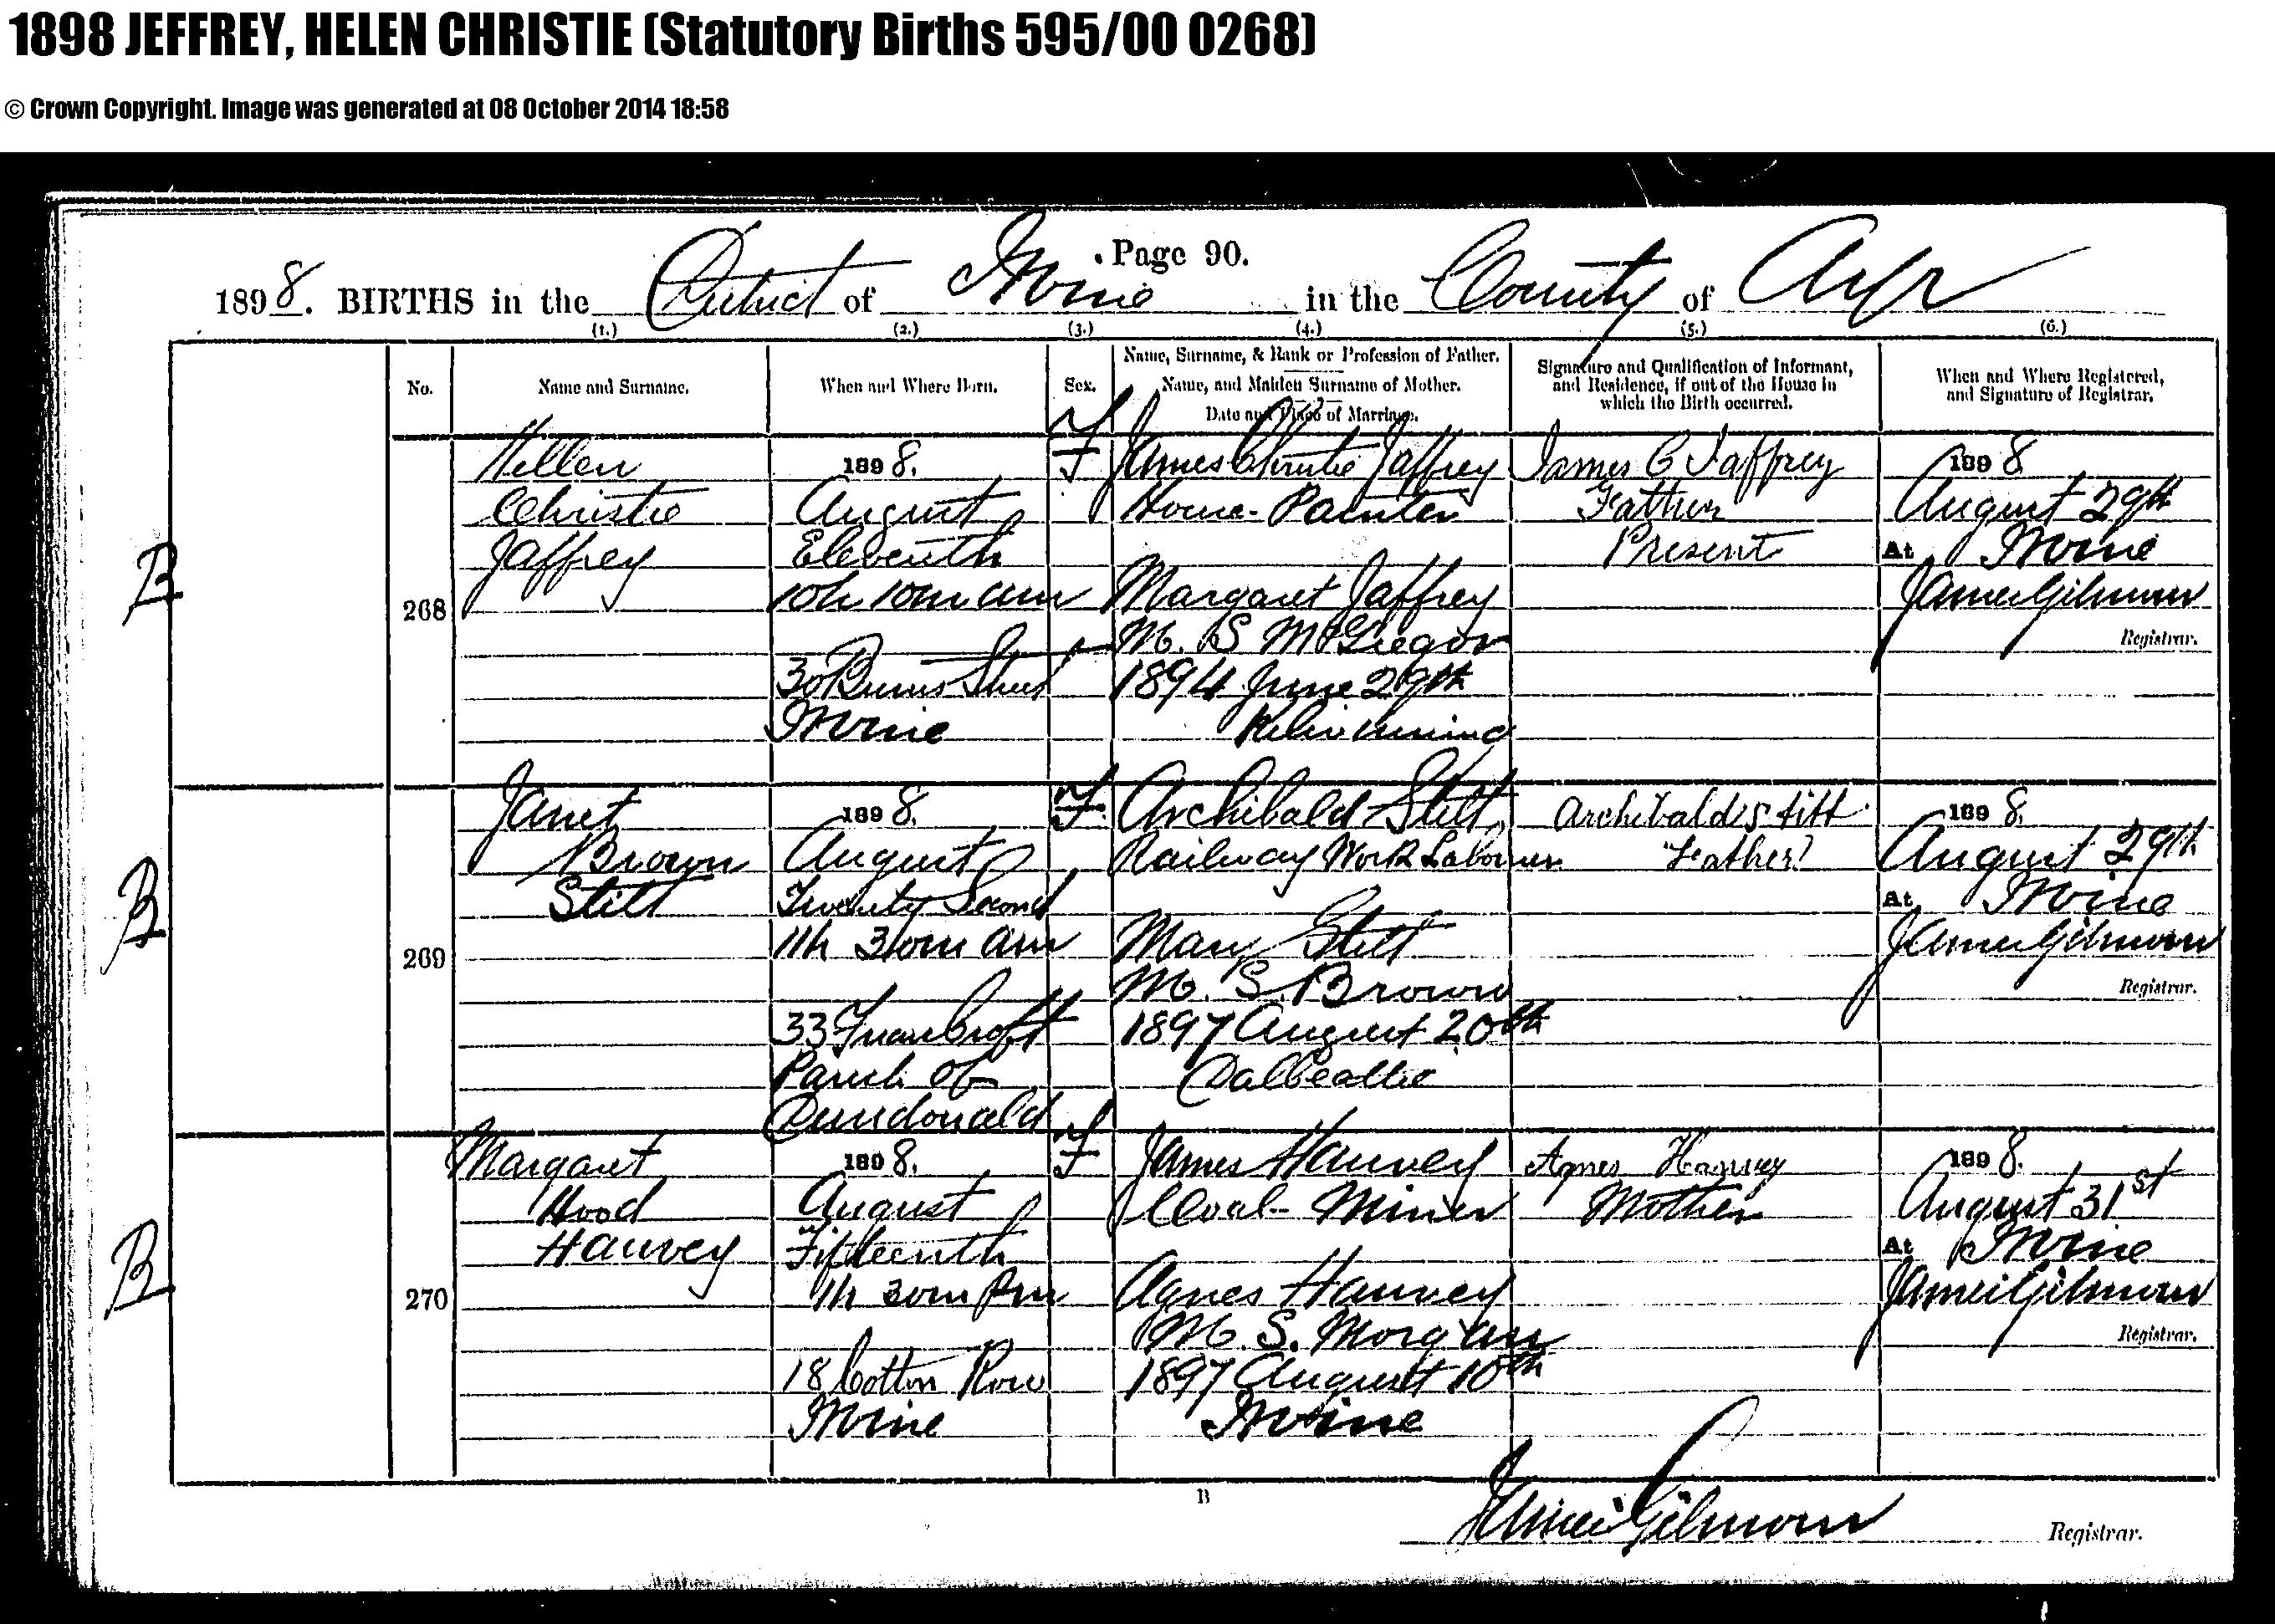 1898 JEFFREY, HELEN CHRISTIE (Statutory Births 595/00 0268)
© Crown Copyright. Image was generated at 08 October 2014 18:58
Page 90.
1898. BIRTHS in the District of Irvine in the County of Ayr
(1.) (2.) (3.) (4.) (5.) (6.)
No.
Name and Surname.
When and Where Born.
Sex.
Name, Surname, & Rank or Profession of Father.
Name, and Maiden Surname of Mother.
Date and Place of Marriage.
Signature and Qualification of Informant,
and Residence, if out of the House in
which the Birth occurred.
When and Where Registered,
and Signature of Registrar.
B
268
Hellen
Christie
Jaffrey
1898.
August
Eleventh
10h 10m am
30 Burns Street
Irvine
F
James Christie Jaffrey
House-Painter
Margaret Jaffrey
M. S McGregor
1894 June 29th
Kilwinning
James C Jaffrey
Father
Present
1898
August 29th
At Irvine
James Gilmour
Registrar.
B
269
Janet
Brown
Stitt
1898.
August
Twenty Second
11h 30m am
33
Parish of
Dundonald
F
Archibald Stitt
Railway Work Labourer
Mary Stitt
M. S. Brown
1897 August 20th
Dalbeattie
Archibald Stitt
Father
1898.
August 29th
At Irvine
James Gilmour
Registrar.
B
270
Margaret
Hood
Harvey
1898.
August
Fifteenth
1h 30m Pm
18 Cotton Row
Irvine
F
James Harvey
Coal-Miner
Agnes Harvey
M. S. Morgan
1897 August 10th
Irvine
Agnes Harvey
Mother
1898.
August 31st
At Irvine
James Gilmour
Registrar.
B
James Gilmour
Registrar.